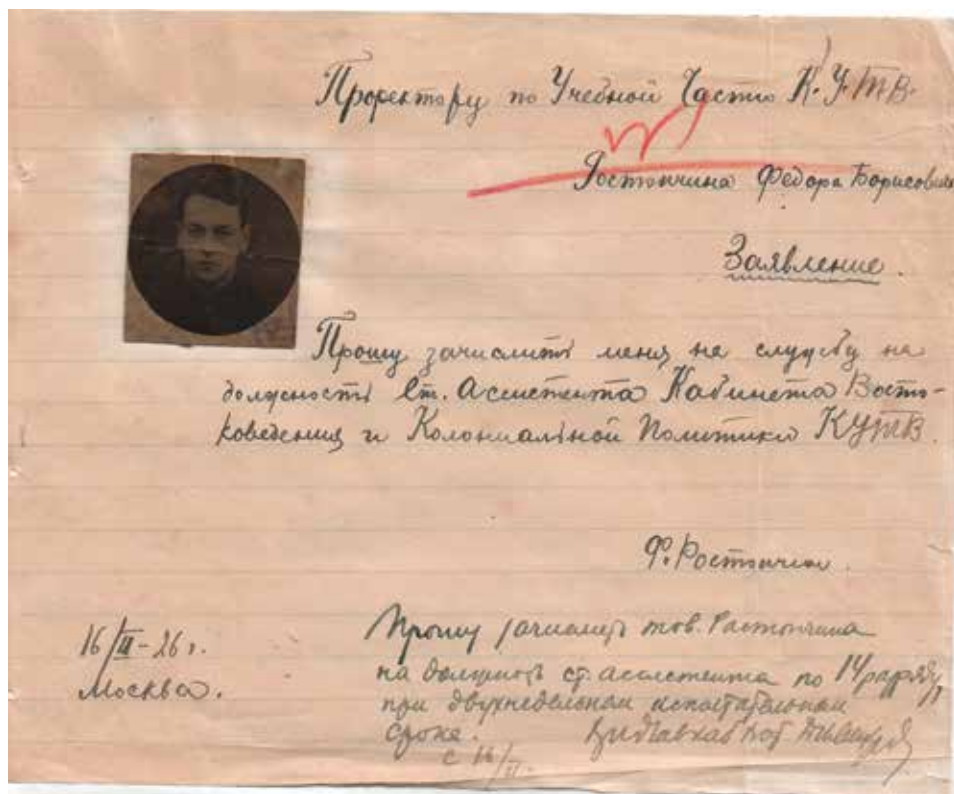 Проректору по Учебной Части К.У.ТВ.
Ростопчина Федора Борисович
Заявление.
Прошу зачислить меня на службу на
должность Ст. Ассистента Кабинета Восто-
коведения и Колониальной Политики КУТВ.
Ф. Ростопчин.
16/II-26 г.
Москва.
Прошу зачислить тов. Растопчина
на должность ст. ассистента по 14 разряду
при двухнедельном испытательном
сроке.
с 16/II.